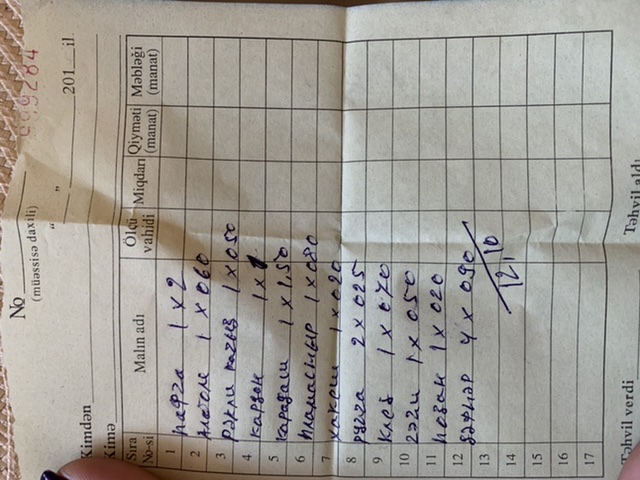 999284
№
(müəssisə daxili)
" " 201 il.
Kimdən
Kimə
Sıra №-si Malın adı Ölçü vahidi Miqdarı Qiyməti (manat) Məbləği (manat)
1 папга 1 x 2
2 Албом 1 x 060
3 рəнкли кағыз 1 x 050
4 кардон 1 x 1
5 карадаш 1 x 1,50
6 пламасныр 1 x 080
7 1 x 020
8 ручка 2 x 025
9 клеб 1 x 070
10 1 x 050
11 позан 1 x 020
12 дəфтəр 4 x 090
13 12,10
14
15
16
17
Təhvil verdi Təhvil aldı